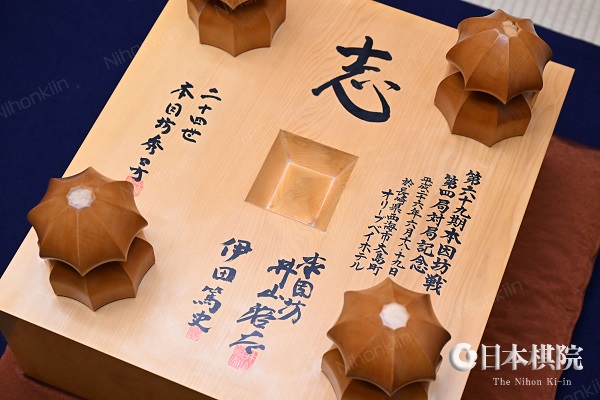 志
第六九期本因坊戦
第四局対局記念
平成二六年六月一八、一九日
於長崎県西海市大島町
オリーブベイホテル
本因坊
井山裕太
伊田篤史
二十四世
本因坊秀芳
日本棋院
The Nihon Ki-in
Nihonkiin